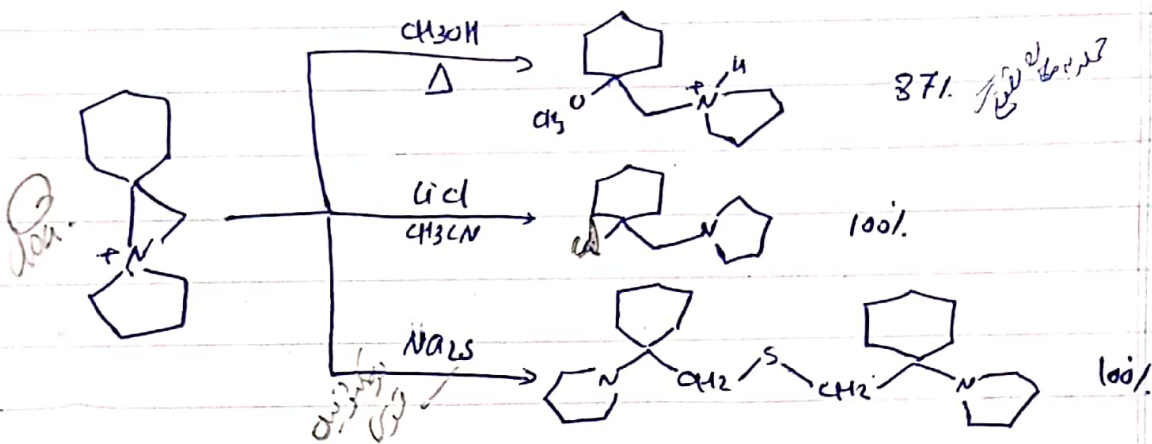 CH3OH
Δ
O
CH3
+
N
H
87%
LiCl
CH3CN
Cl
N
100%
+
N
Na2S
N
CH2
S
CH2
N
100%